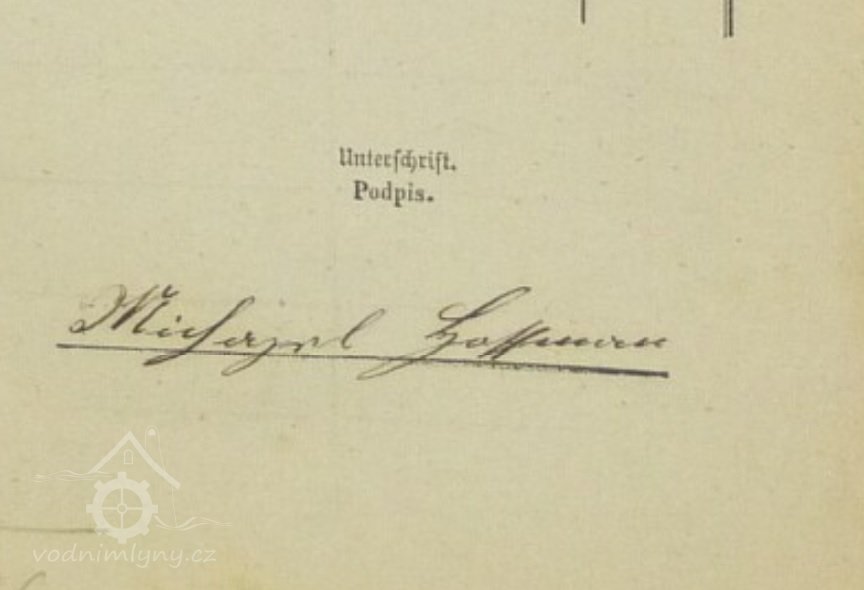 Unterschrift.
Podpis.
Michael Hoffman
vodnimlyny.cz